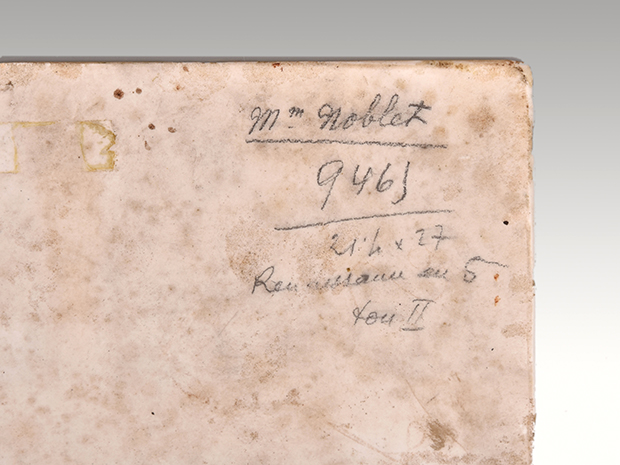 Mm Noblet
9463
21.4 x 27
Renaissance en 5
ton II